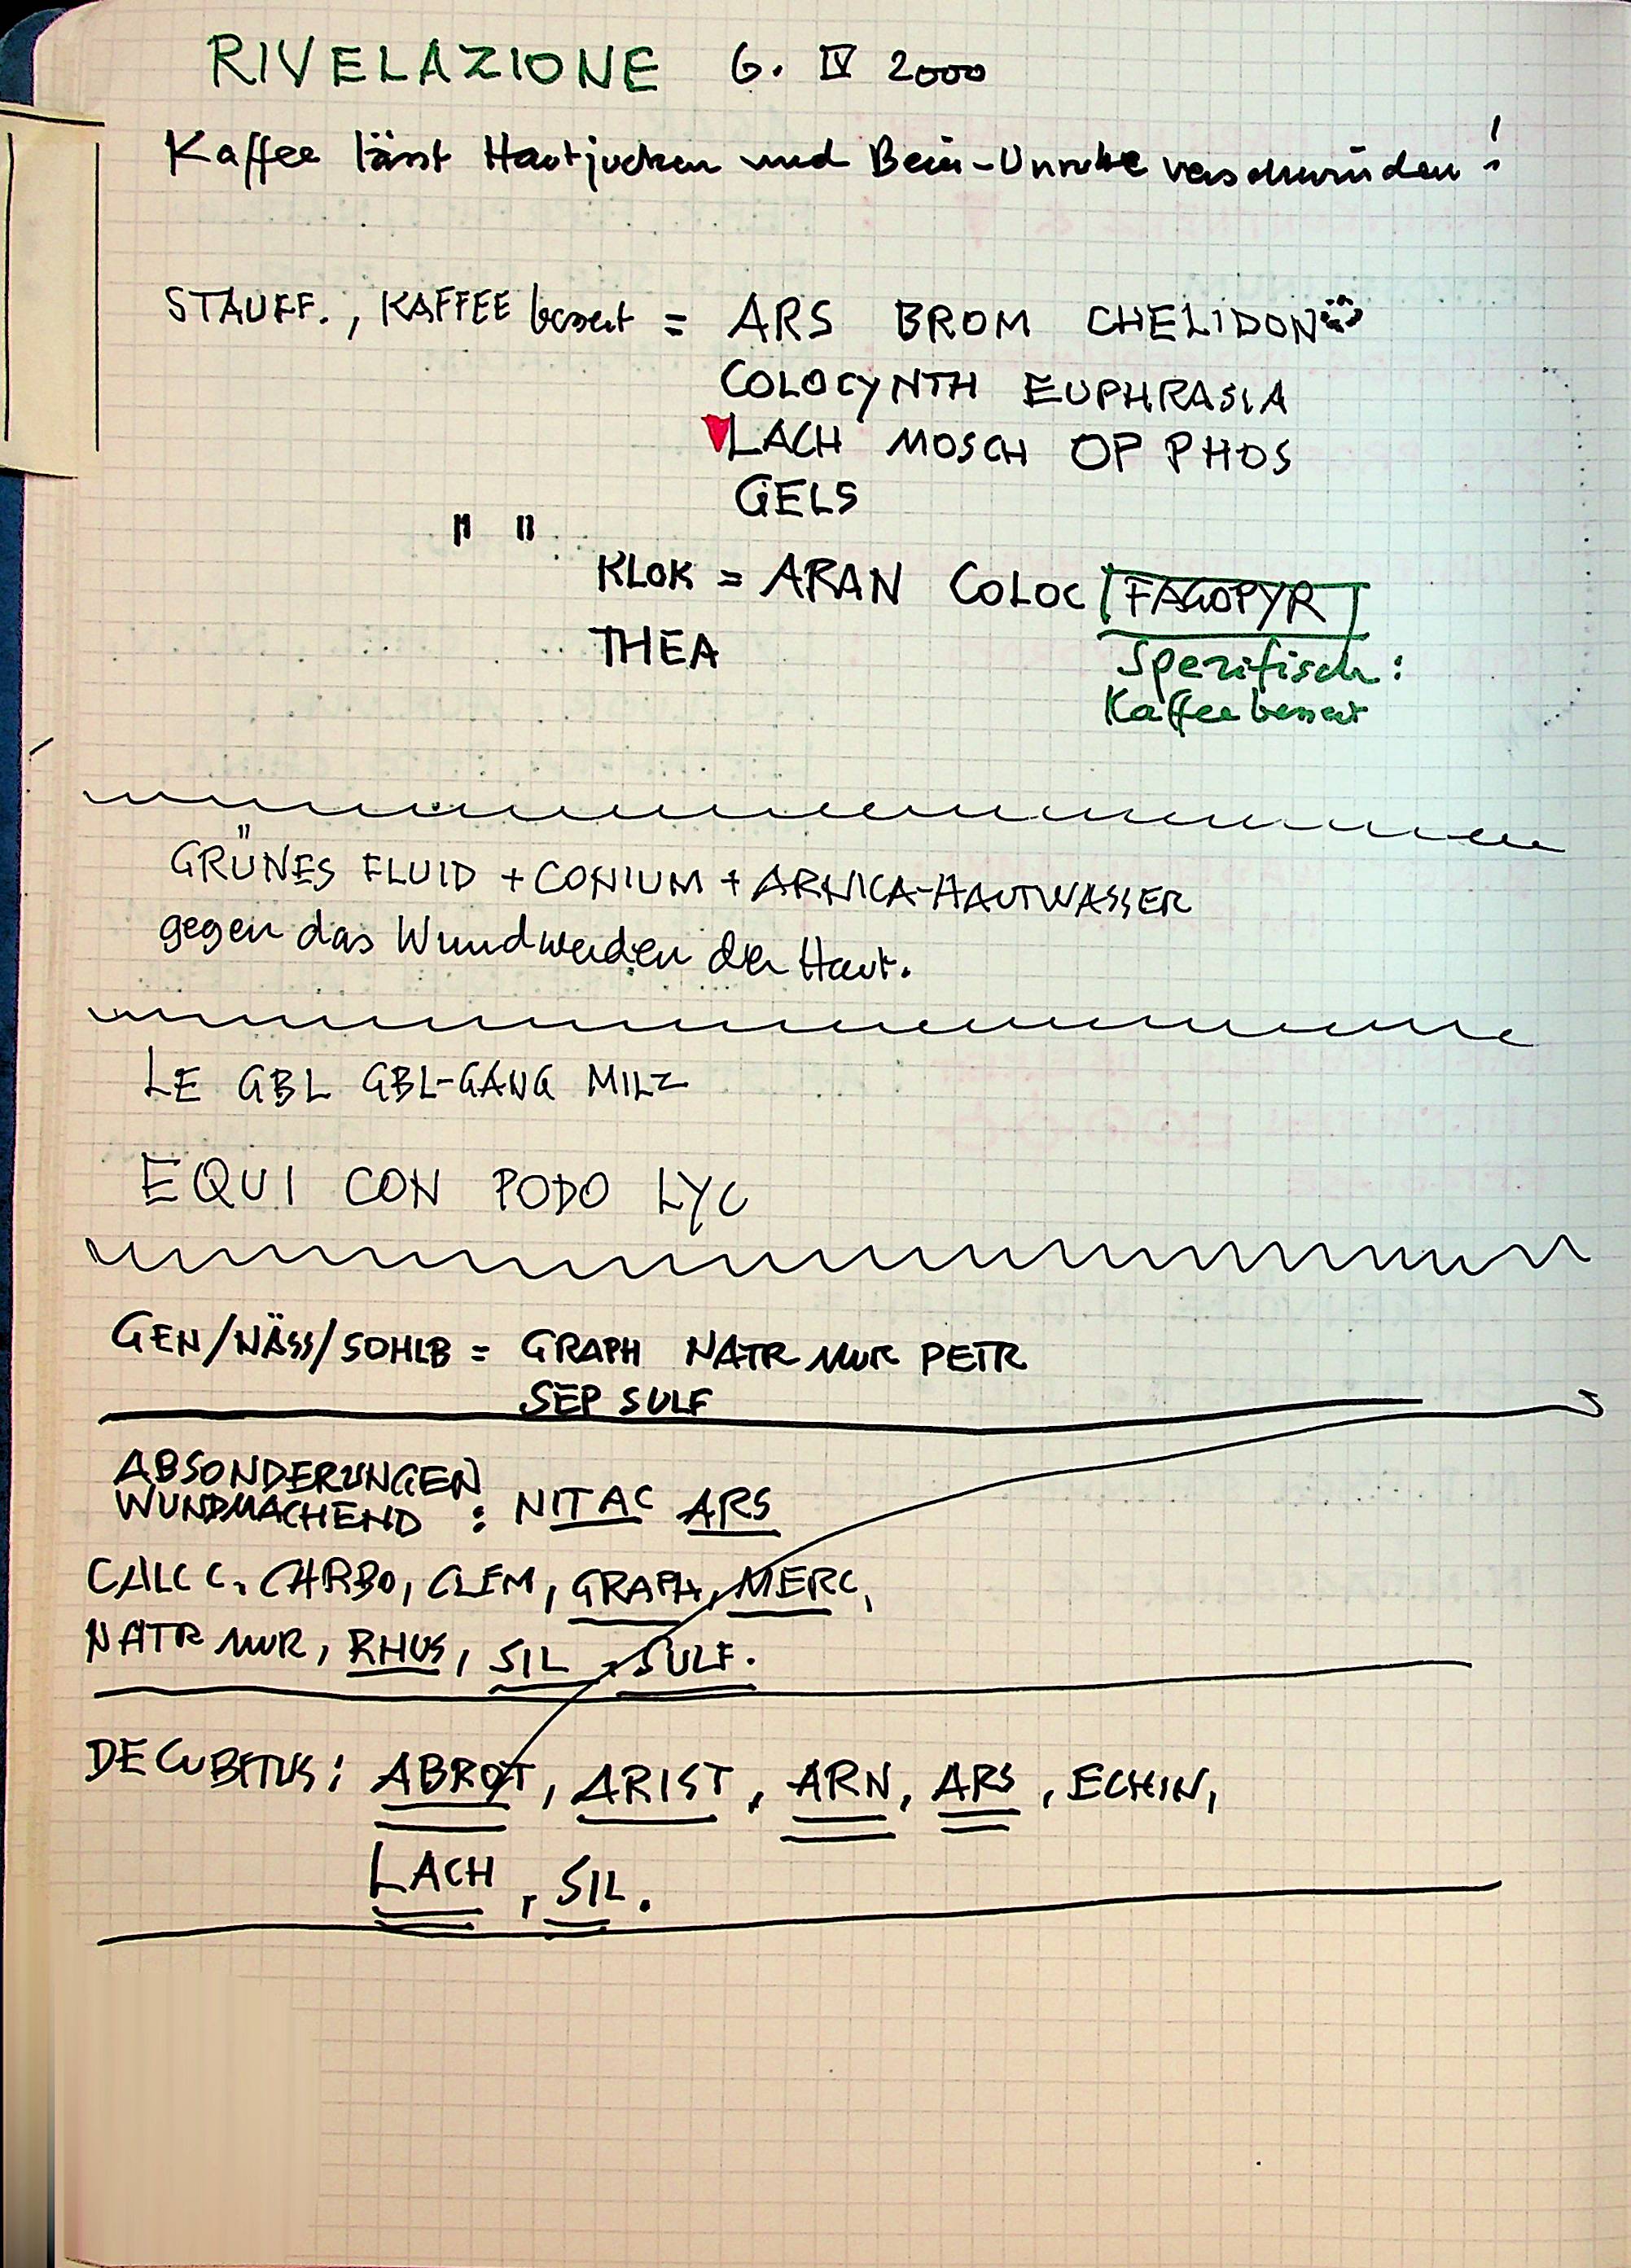 RIVELAZIONE 6. IV 2000
Kaffee lässt Hautjucken und Bein-Unruhe verschwinden!
STAUFF., KAFFEE bessert = ARS BROM CHELIDON
COLOCYNTH EUPHRASIA
LACH MOSCH OP PHOS
GELS
" "
KLOK = ARAN COLOC FAGOPYR
THEA
Spezifisch:
Kaffee bessert
GRÜNES FLUID + CONIUM + ARNICA-HAUTWASSER
gegen das Wundwerden der Haut.
LE GBL GBL-GANG MILZ
EQUI CON PODO LYC
GEN/NÄSS/SOHLB = GRAPH NATR MUR PETR
SEP SULF
ABSONDERUNGEN
WUNDMACHEND : NIT AC ARS
CALC C. CARBO, CLEM, GRAPH, MERC,
NATR MUR, RHUS, SIL, SULF.
DECUBITUS: ABROT, ARIST, ARN, ARS, ECHIN,
LACH, SIL.